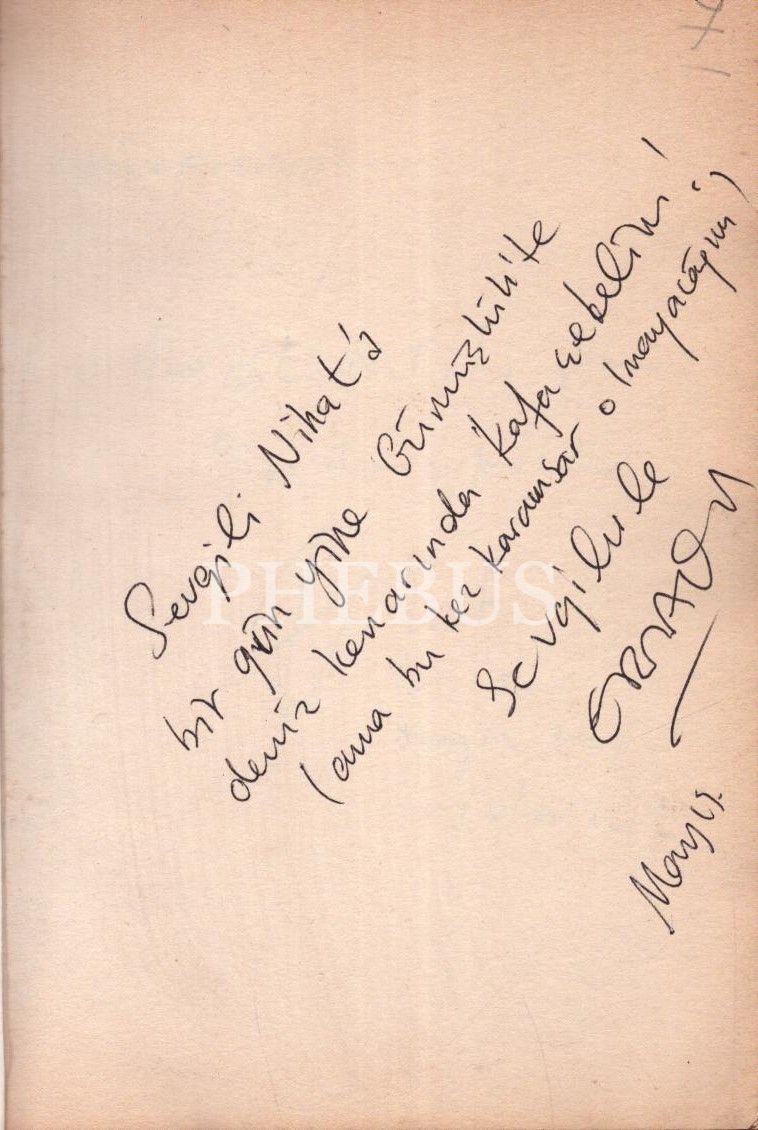 Sevgili Nihat'a
bir gün yine Gümüşlük'te
deniz kenarında kafa çekelim!
(ama bu kez karamsar olmayacağım!)
Sevgilerle
Mayıs
PHEBUS